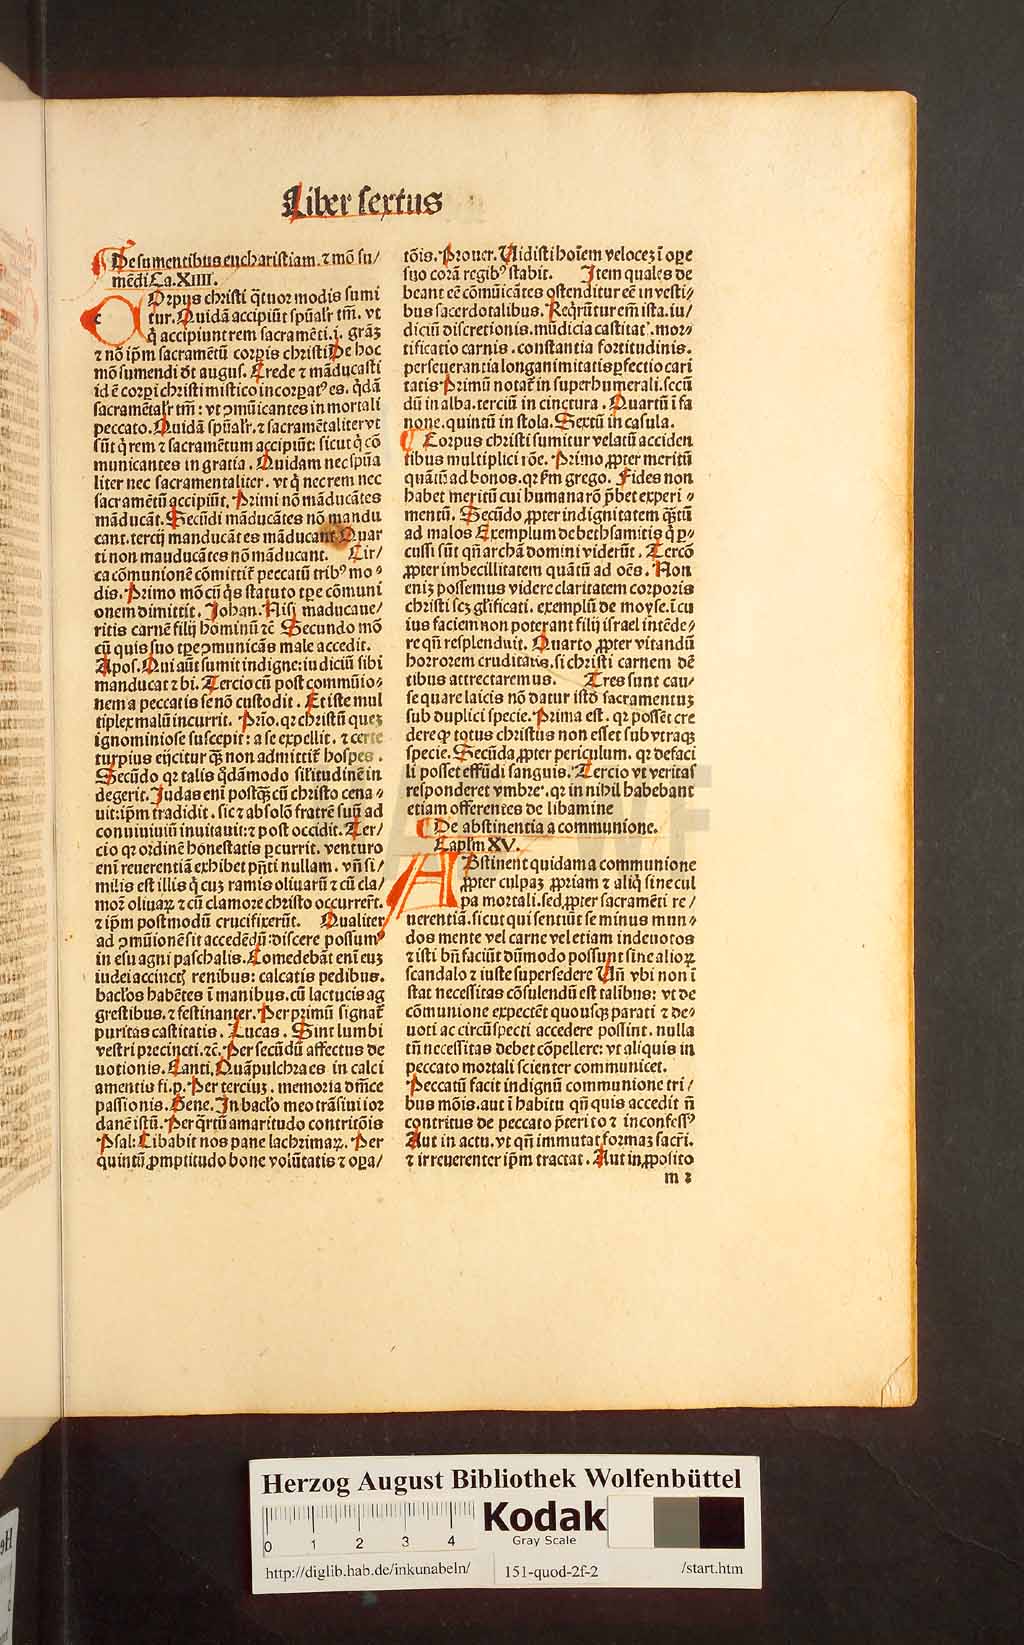 Liber sextus
De sumentibus eucharistiam. ⁊ mō su/
mēdi Ca. XIIII.
COrpus christi q̄tuor modis sumi
tur. Quidā accipiūt spūalr̄ tm̄. vt
q̄ accipiunt rem sacramēti .i. grāꝫ
⁊ nō ip̄m sacramētū corpis christi De hoc
mō sumendi dt̄ augus. Crede ⁊ māducasti
id ē corpi christi mistico incorpat᷒ es. q̄dā
sacramētalr̄ tm̄: vt ꝯmūicantes in mortali
peccato. Quidā spūalr̄. ⁊ sacramētaliter vt
sūt q̄ rem ⁊ sacramētum accipiūt: sicut q̄ cō
municantes in gratia. Quidam nec spūa
liter nec sacramentaliter. vt q̄ nec rem nec
sacramētū accipiūt. Primi nō māducātes
māducāt. Secūdi māducātes nō mandu
cant. tercij manducātes māducant. Quar
ti non mauducātes nō māducant. Cir/
ca cōmunionē cōmittit̄ peccatū trib᷒ mo⸗
dis. Primo mō cū q̄s statuto tp̄e cōmuni
onem dimittit. Johan. Nisi maducaue/
ritis carnē filij hominū ⁊c̄ Secundo mō
cū quis suo tp̄e ꝯmunicās male accedit.
Apos. Qui aūt sumit indigne: iudiciū sibi
manducat ⁊ bi. Tercio cū post commūio⸗
nem a peccatis se nō custodit. Et iste mul
tiplex malū incurrit. Prīo. qꝛ christū queꝫ
ignominiose suscepit: a se expellit. ⁊ certe
turpius eijcitur q̄ꝫ non admittit̄ hospes.
Secūdo qꝛ talis q̄dāmodo sil'itudinē in
degerit. Judas eni postq̄ꝫ cū christo cena⸗
uit: ip̄m tradidit. sic ⁊ absolō fratrē suū ad
conuiuiuiū inuitauit: ⁊ post occidit. Ter/
cio qꝛ ordinē honestatis ꝑcurrit. venturo
enī reuerentiā exhibet pn̄ti nullam. vn̄ si/
milis est illis q̄ cuꝫ ramis oliuarū ⁊ cū cla/
mor̄ oliuaꝝ ⁊ cū clamore christo occurrēt.
⁊ ip̄m postmodū crucifixerūt. Qualiter
ad ꝯmūionē sit accedēdū: discere possum᷒
in esu agni paschalis. Comedebāt enī euꝫ
iudei accincti renibus: calcatis pedibus.
bacl'os habētes ī manibus. cū lactucis ag
grestibus. ⁊ festinanter. Per primū signat̄
puritas castitatis. Lucas. Sint lumbi
vestri precincti. ⁊c̄. Per secūdū affectus de
uotionis. Canti. Quā pulchra es in calci
amentis fi. p. Per terciuꝫ. memoria dn̄ice
passionis. Gene. In bacl'o meo trāsiui ior
danē istū. Per q̄rtū amaritudo contritōis
Psal: Cibabit nos pane lachrimaꝝ. Per
quintū ꝓmptitudo bone volūtatis ⁊ oꝑa/
tōis. Prouer. Uidisti hoīem velocez ī oꝑe
suo corā regib᷒ stabit. Item quales de
beant eē cōmūicātes ostenditur eē in vesti⸗
bus sacerdotalibus. Reqrūtur em̄ ista. iu/
diciū discretionis. mūdicia castitat̄. mor⸗
tificatio carnis. constantia fortitudinis.
perseuerantia longanimitatis ꝑfectio cari
tatis Primū notat̄ in superhumerali. secū
dū in alba. terciū in cinctura. Quartū ī fa
none. quintū in stola. Sextū in casula.
Corpus christi sumitur velatū acciden
tibus multiplici rōe. Primo ꝓpter meritū
quātū ad bonos. qꝛ ẜm grego. Fides non
habet meritū cui humana rō p̄bet experi⸗
mentū. Secūdo ꝓpter indignitatem q̄ꝫtū
ad malos Exemplum de bethsamitis q̄ p̄⸗
cussi sūt qn̄ archā domini viderūt. Tercō
ꝓpter imbecillitatem quātū ad oēs. Non
enīꝫ possemus videre claritatem corporis
christi scꝫ gl'ificati. exemplū de moyse. ī cu
ius faciem non poterant filij israel intēde/
re qn̄ resplenduit. Quarto ꝓpter vitandū
horrorem cruditatis. si christi carnem dē
tibus attrectaremus. Tres sunt cau/
se quare laicis nō datur istō sacramentuꝫ
sub duplici specie. Prima est. qꝛ posset cre
dere ꝙ totus christus non esset sub vtraqꝫ
specie. Secūda ꝓpter periculum. qꝛ de faci
li posset effūdi sanguis. Tercio vt veritas
responderet vmbre. qꝛ in nihil habebant
etiam offerentes de libamine
De abstinentia a communione.
Capl'm XV.
ABstinent quidam a communione
ꝓpter culpaꝫ ꝓpriam ⁊ aliq̄ sine cul
pa mortali. sed ꝓpter sacramēti re/
uerentiā. sicut qui sentiūt se minus mun⸗
dos mente vel carne vel etiam indeuotos
⁊ isti bn̄ faciūt dūmodo possunt sine alioꝝ
scandalo ⁊ iuste supersedere Un̄ vbi non ī
stat necessitas cōsulendū est talibus: vt de
cōmunione expectēt quousqꝫ parati ⁊ de⸗
uoti ac circūspecti accedere possint. nulla
tn̄ necessitas debet cōpellere: vt aliquis in
peccato mortali scienter communicet.
Peccatū facit indignū communione tri/
bus mōis. aut ī habitu qn̄ quis accedit n̄
contritus de peccato p̄terito ⁊ inconfess᷒
Aut in actu. vt qn̄ immutat formaꝫ sacri̅.
⁊ irreuerenter ip̄m tractat. Aut in ꝓposito
m 2
Herzog August Bibliothek Wolfenbüttel
0 1 2 3 4
Kodak
Gray Scale
http://diglib.hab.de/inkunabeln/ 151-quod-2f-2 /start.htm